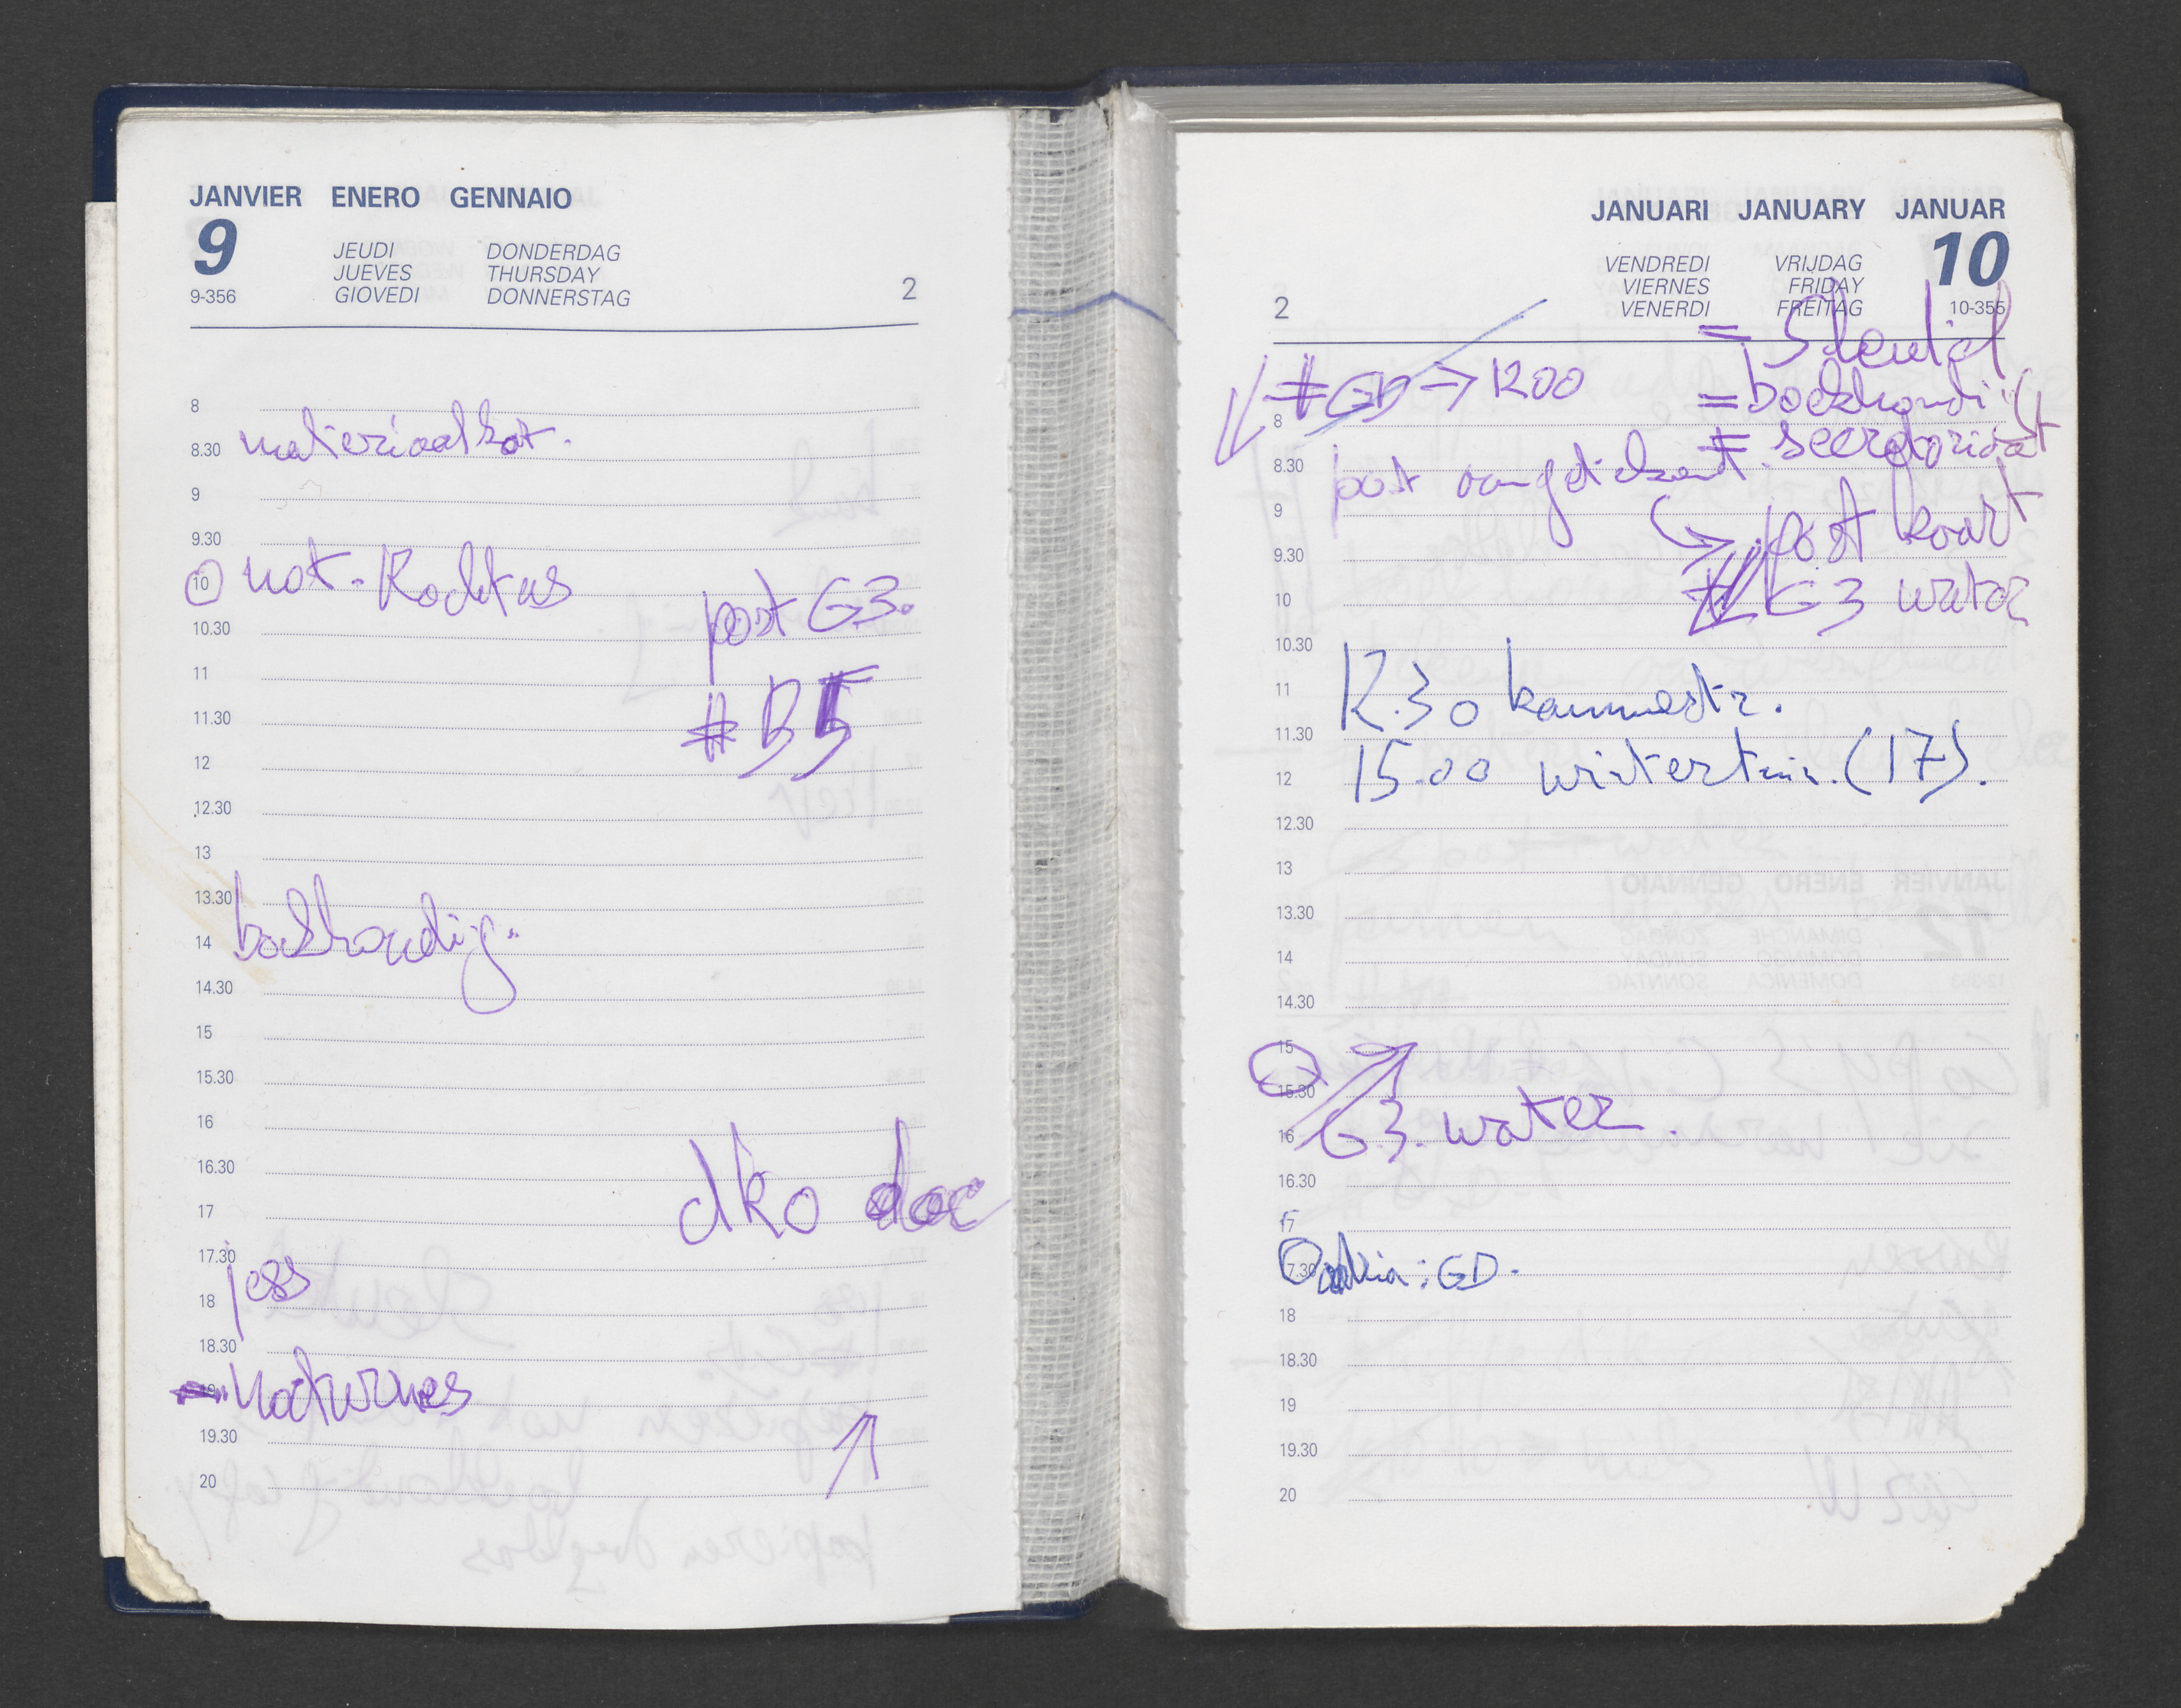 JANVIER ENERO GENNAIO
9
JEUDI DONDERDAG
JUEVES THURSDAY
9-356 GIOVEDI DONNERSTAG
2
8
8.30 materiaalkot.
9
9.30
10 not. Rochtus
post G3.
10.30
11
# B5
11.30
12
12.30
13
13.30
14 boekhoudig.
14.30
15
15.30
16
16.30
dko doc
17
17.30
jess
18
18.30
19 nocturnes
19.30
20
JANUARI JANUARY JANUAR
10
VENDREDI VRIJDAG
VIERNES FRIDAY
VENERDI FREITAG 10-355
2
= Sleutel
# GD → 1200
= boekhoudi
8
# secretariaat
8.30 post aangetekend.
9
post kaart
9.30
# G3 water
10
10.30
11 12.30 kammestr.
11.30
12 15.00 wintertuin. (17).
12.30
13
13.30
14
14.30
15
15.30
16 G3. water.
16.30
17
17.30 : GD.
18
18.30
19
19.30
20